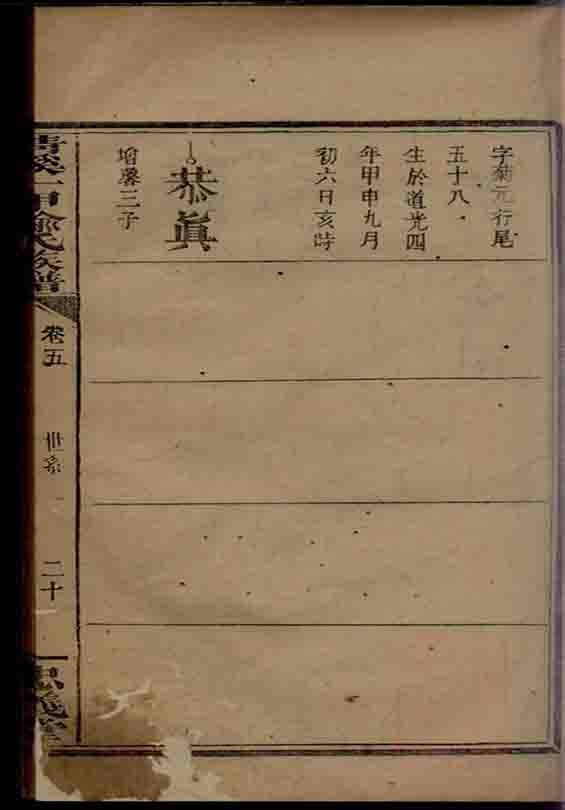 字菊元行尾
五十八
生於道光四
年甲申九月
初六日亥時
恭眞
增馨三子
清溪一甲徐氏族譜
卷五
世系
二十
忠義堂